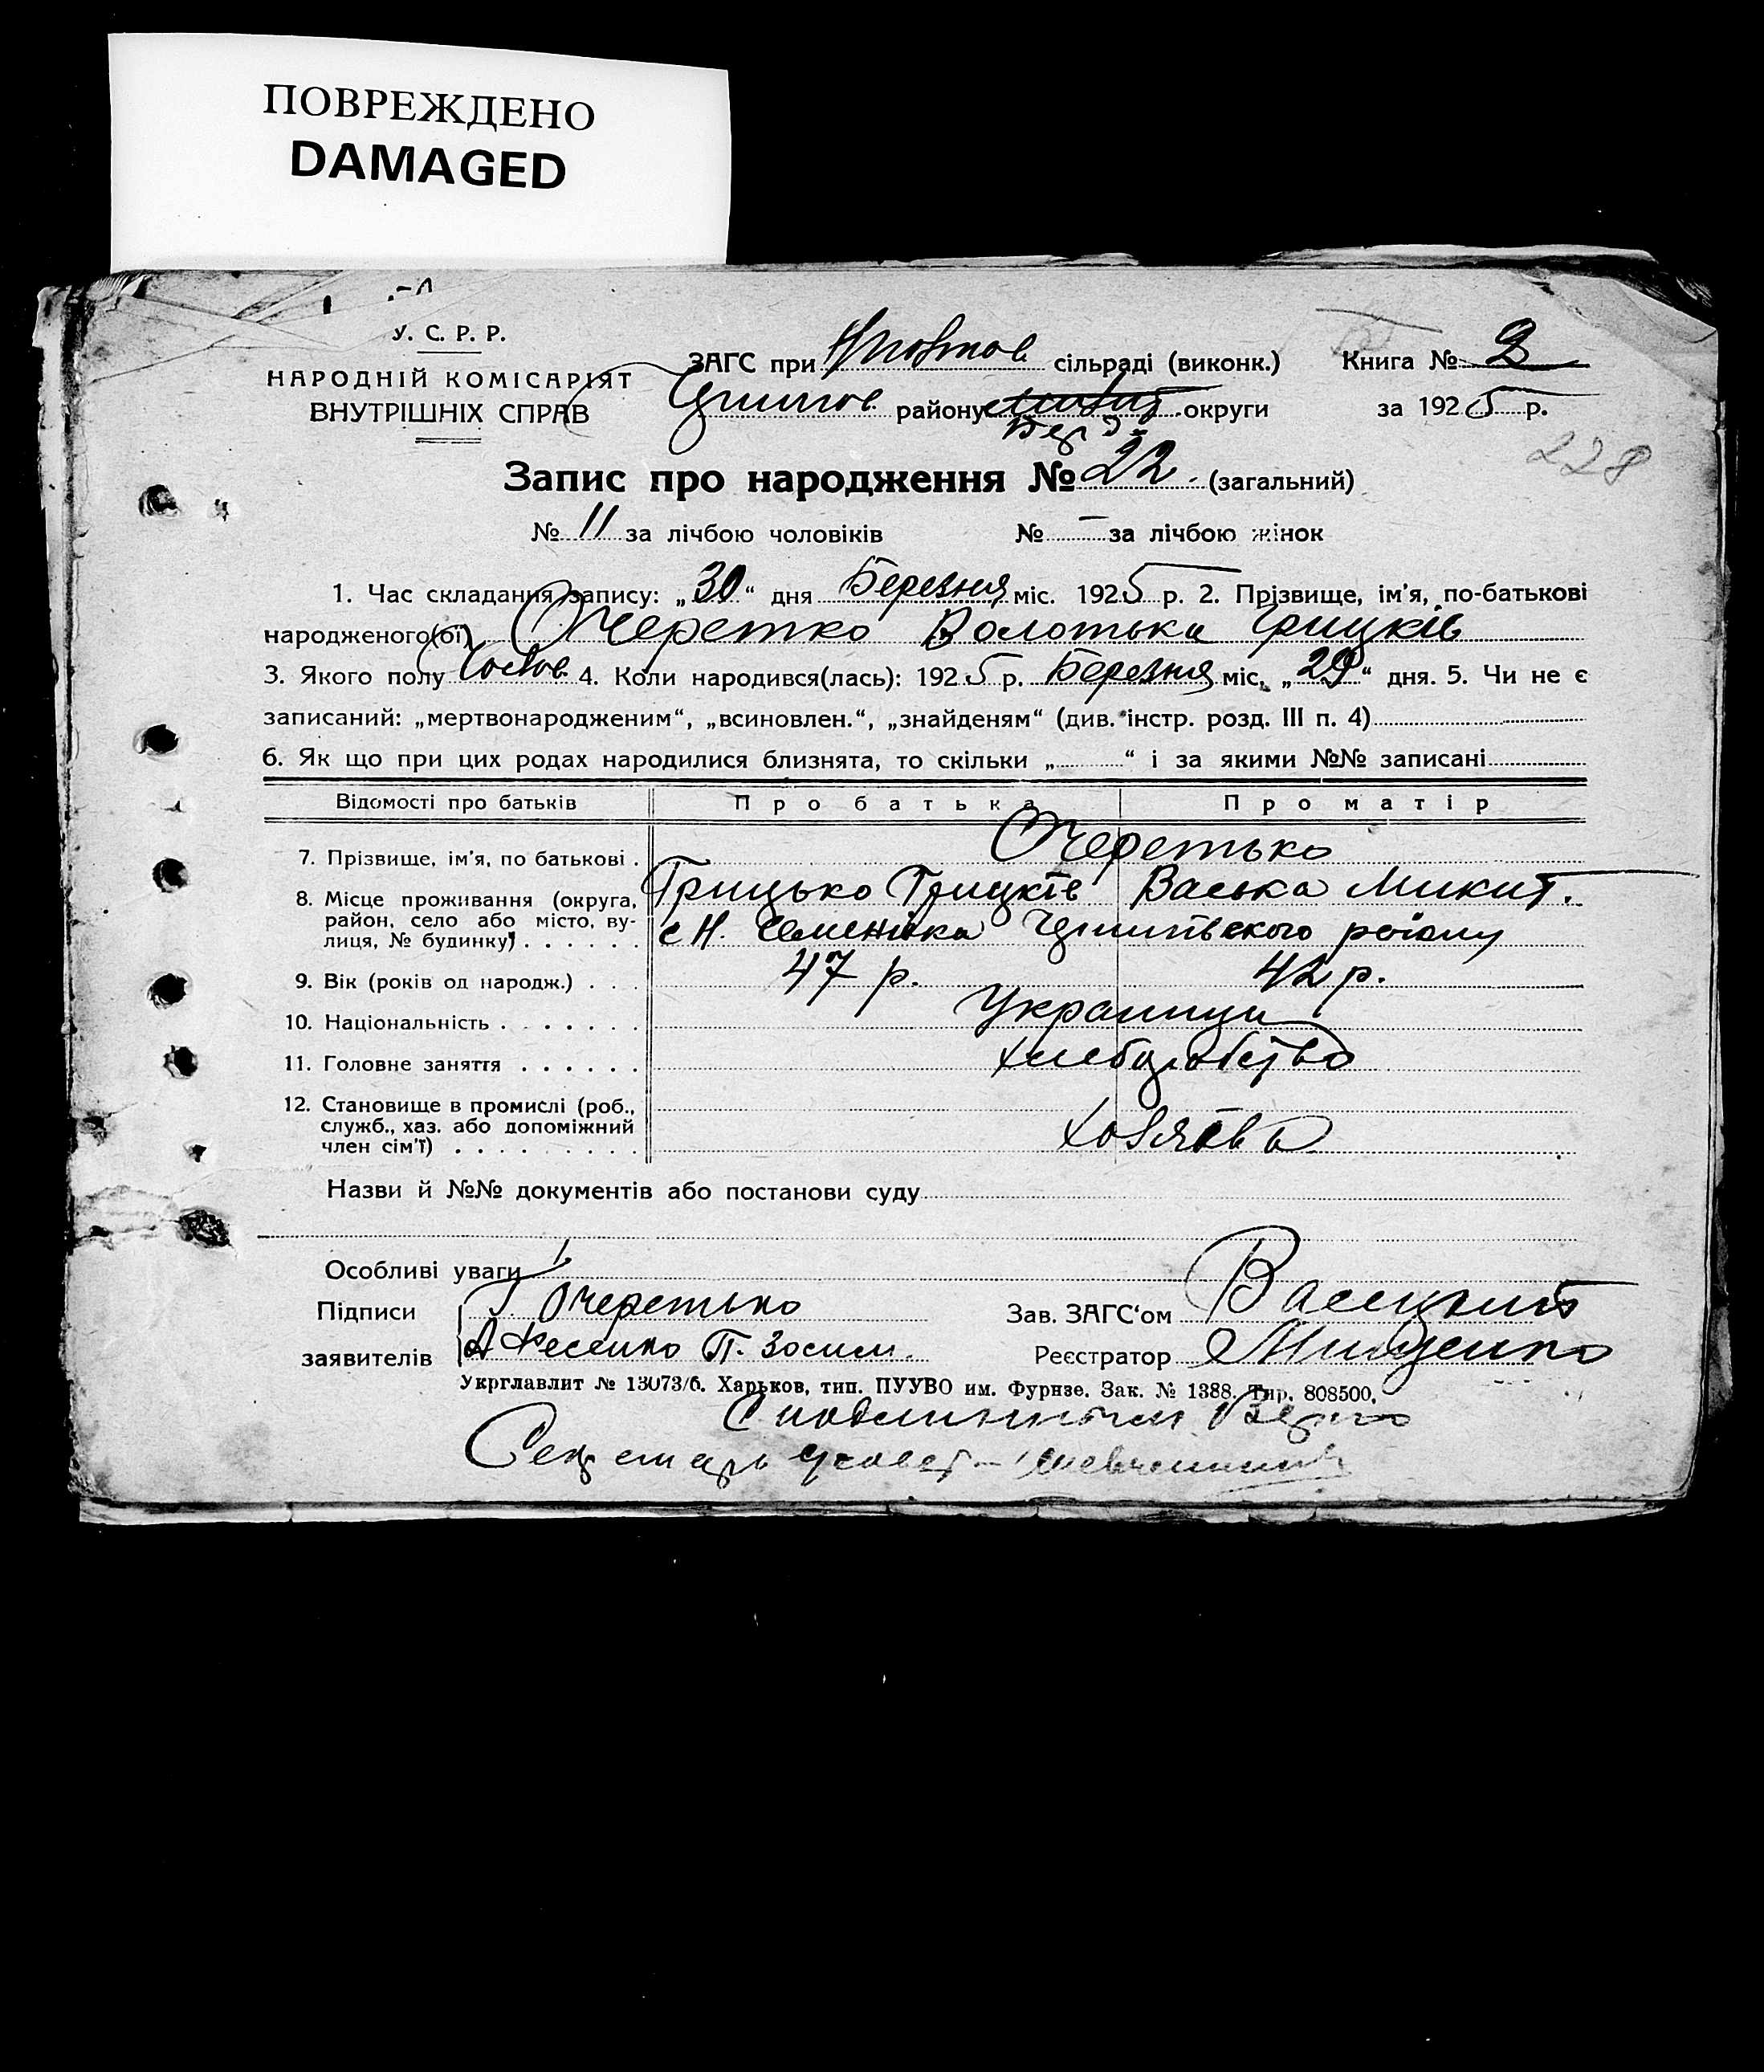 ПОВРЕЖДЕНО
DAMAGED
У. С. Р. Р.
НАРОДНІЙ КОМІСАРІЯТ
ВНУТРІШНІХ СПРАВ
ЗАГС при сільраді (виконк.)
району округи
Книга № 2
за 1925 р.
228
Запис про народження № 22 (загальний)
№ 11 за лічбою чоловіків № — за лічбою жінок
1. Час складання запису: „30“ дня Березня міс. 1925 р. 2. Прізвище, ім'я, по-батькові
народженого(ої) Очеретко Волотька Грицків
3. Якого полу 4. Коли народився(лась): 1925 р. Березня міс. „29“ дня. 5. Чи не є
записаний: „мертвонародженим“, „всиновлен.“, „знайденям“ (див. інстр. розд. III п. 4)
6. Як що при цих родах народилися близнята, то скільки „ “ і за якими №№ записані
Відомості про батьків Про батька Про матір
7. Прізвище, ім'я, по батькові . Очеретько
Грицько Грицків Васька Микит.
8. Місце проживання (округа,
район, село або місто, ву-
лиця, № будинку) . . . . . . с Н.
9. Вік (років од народж.) . . . 47 р. 42 р.
10. Національність . . . . . . . Украинци
11. Головне заняття . . . . . . хлеборобство
12. Становище в промислі (роб.,
служб., хаз. або допоміжний
член сім'ї) . . . . . . . . . Хозяїва
Назви й №№ документів або постанови суду
Особливі уваги
Підписи Г. Очеретько
заявителів П. Зосим.
Зав. ЗАГС'ом Васецький
Реєстратор Мищенко
Укрглавлит № 13073/б. Харьков, тип. ПУУВО им. Фрунзе. Зак. № 1388. Тир. 808500.
С подлинным верно
Секретарь